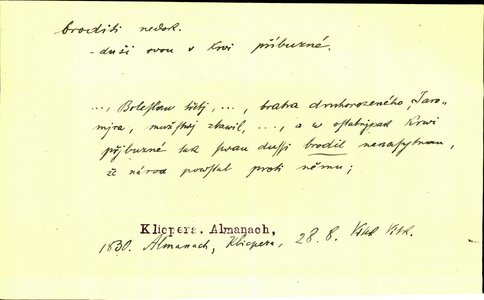 broditi nedok.
- duši svou v krvi příbuzné.
..., Boleslaw třetj, ..., bratra druhorozeného, Jaro-
mjra, mužstwj zbawil, ..., a w ostatnjch krwi
přjbuzné tak swau dussi brodil nenasytnau,
že národ powstal proti němu;
Klicpera. Almanach,
1830. Almanach, Klicpera, 28. 8.